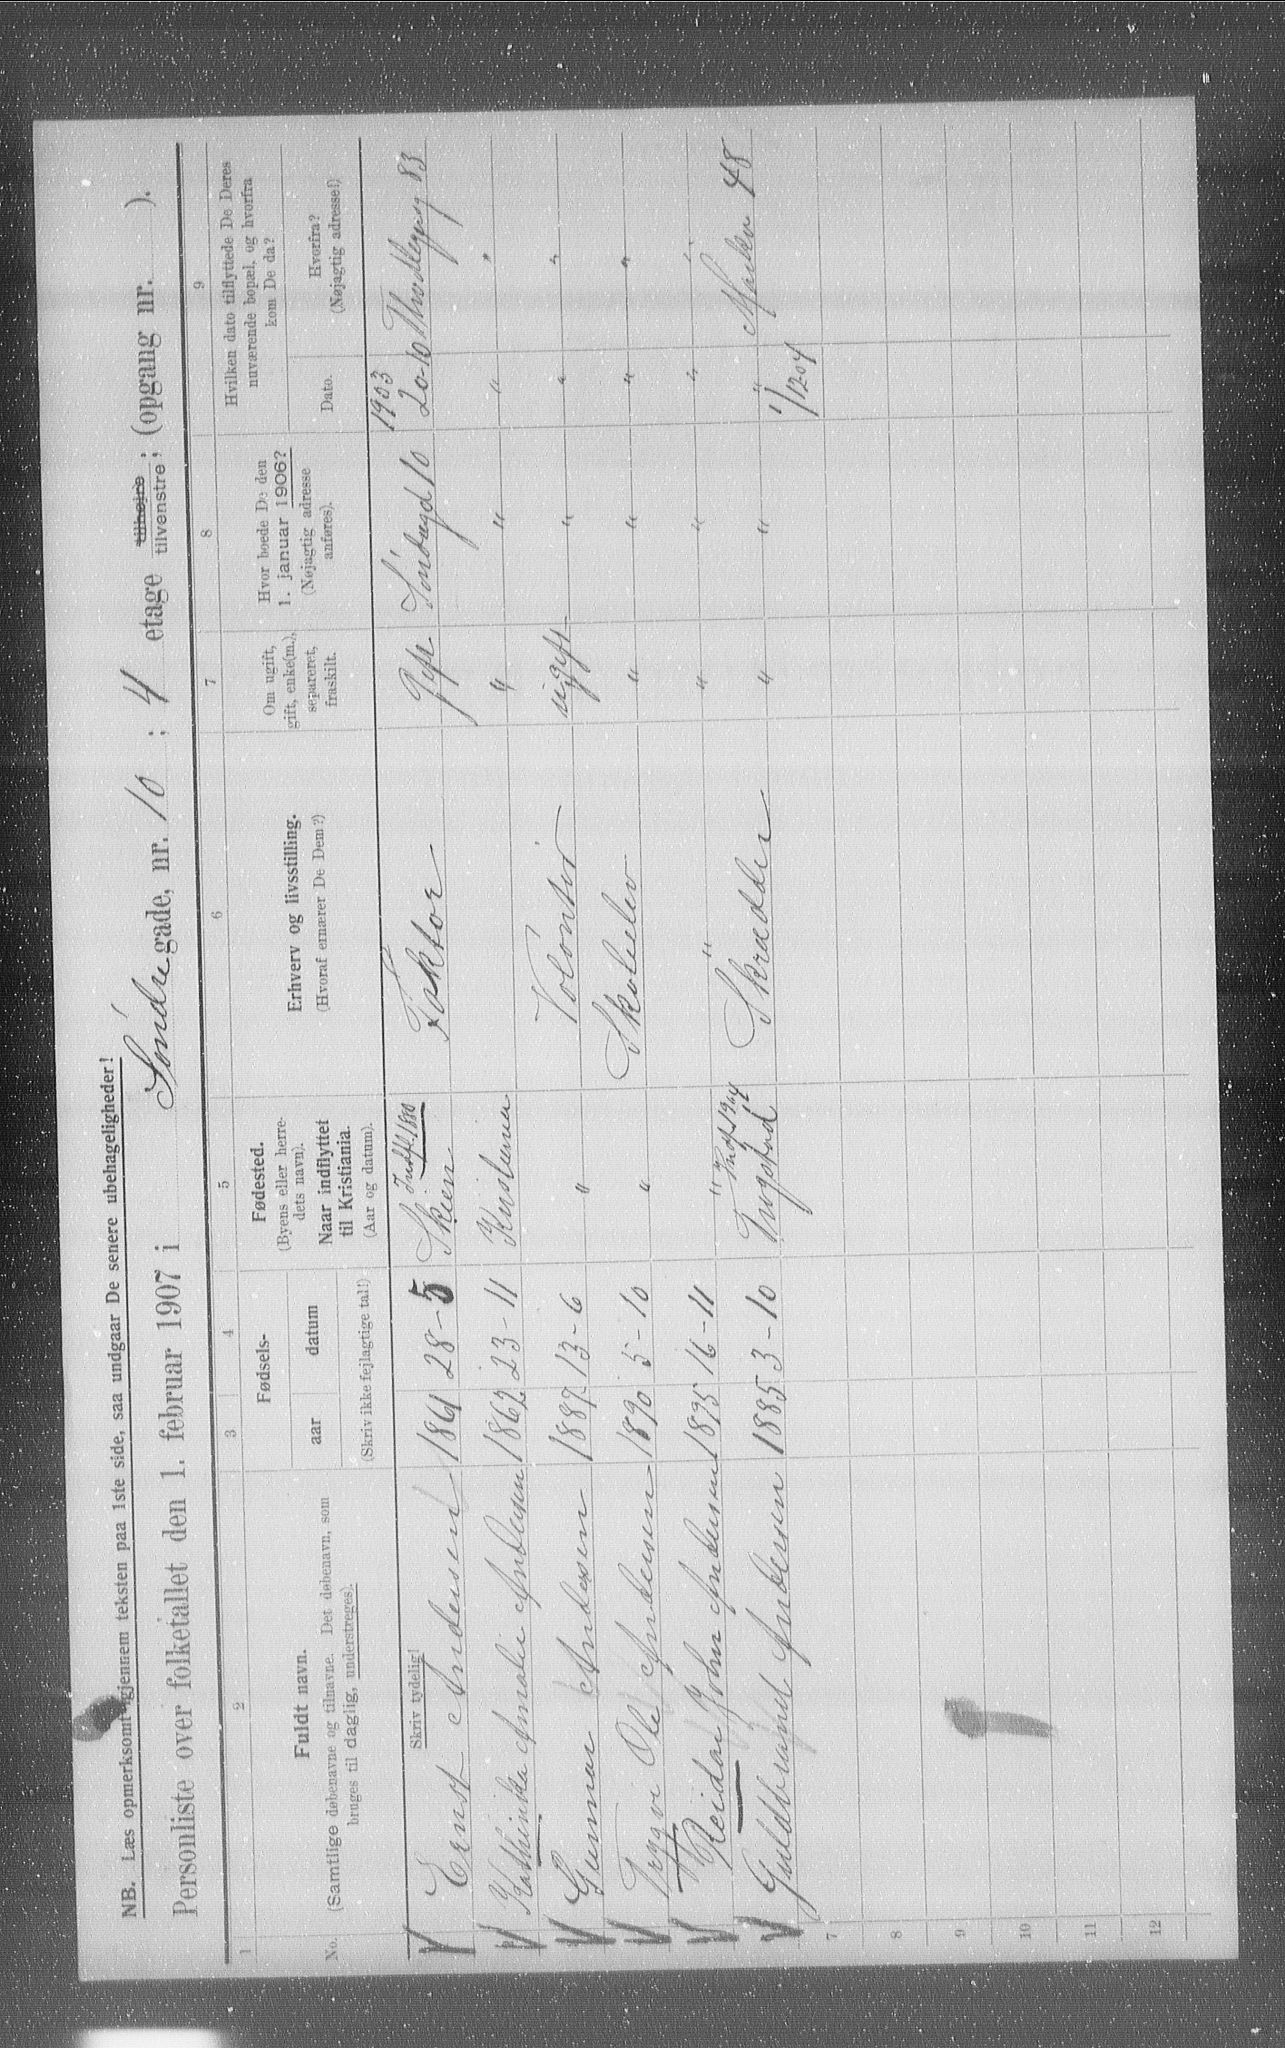 NB. Læs opmerksomt igjennem teksten paa 1ste side, saa undgaar De senere ubehageligheder!
Personliste over folketallet den 1. februar 1907 i Søndre gade, nr. 10 ; 4 etage tilhøjre tilvenstre ; (opgang nr. ).
1 2 3 4 5 6 7 8 9
No.
Fuldt navn.
(Samtlige døbenavne og tilnavne. Det døbenavn, som
bruges til daglig, understreges).
Fødsels-
aar datum
(Skriv ikke fejlagtige tal!)
Fødested.
(Byens eller herre-
dets navn).
Naar indflyttet
til Kristiania.
(Aar og datum).
Erhverv og livsstilling.
(Hvoraf ernærer De Dem?)
Om ugift,
gift, enke(m.),
separeret,
fraskilt.
Hvor boede De den
1. januar 1906?
(Nøjagtig adresse
anføres).
Hvilken dato tilflyttede De Deres
nuværende bopæl, og hvorfra
kom De da?
Dato.
Hvorfra?
(Nøjagtig adresse!)
Skriv tydelig!
Indfl. 1880 1903
Ernst Andersen 1861 28-5 Skien Faktor Gift 10 20-10 83
Kathinka Amalie Andersen 1862 23-11 Kristiania " " " "
Gunnar Andersen 1887 13-6 " Volontør ugift " " "
Trygve Ole Andersen 1890 5-10 " Skoleelev " " " "
Reidar John Andersen 1895 16-11 " " " " " "
Indf. 1904
Guldbrand Andersen 1885 3-10 Trøgstad Skrædder " " " 48
1/1204
7
8
9
10
11
12